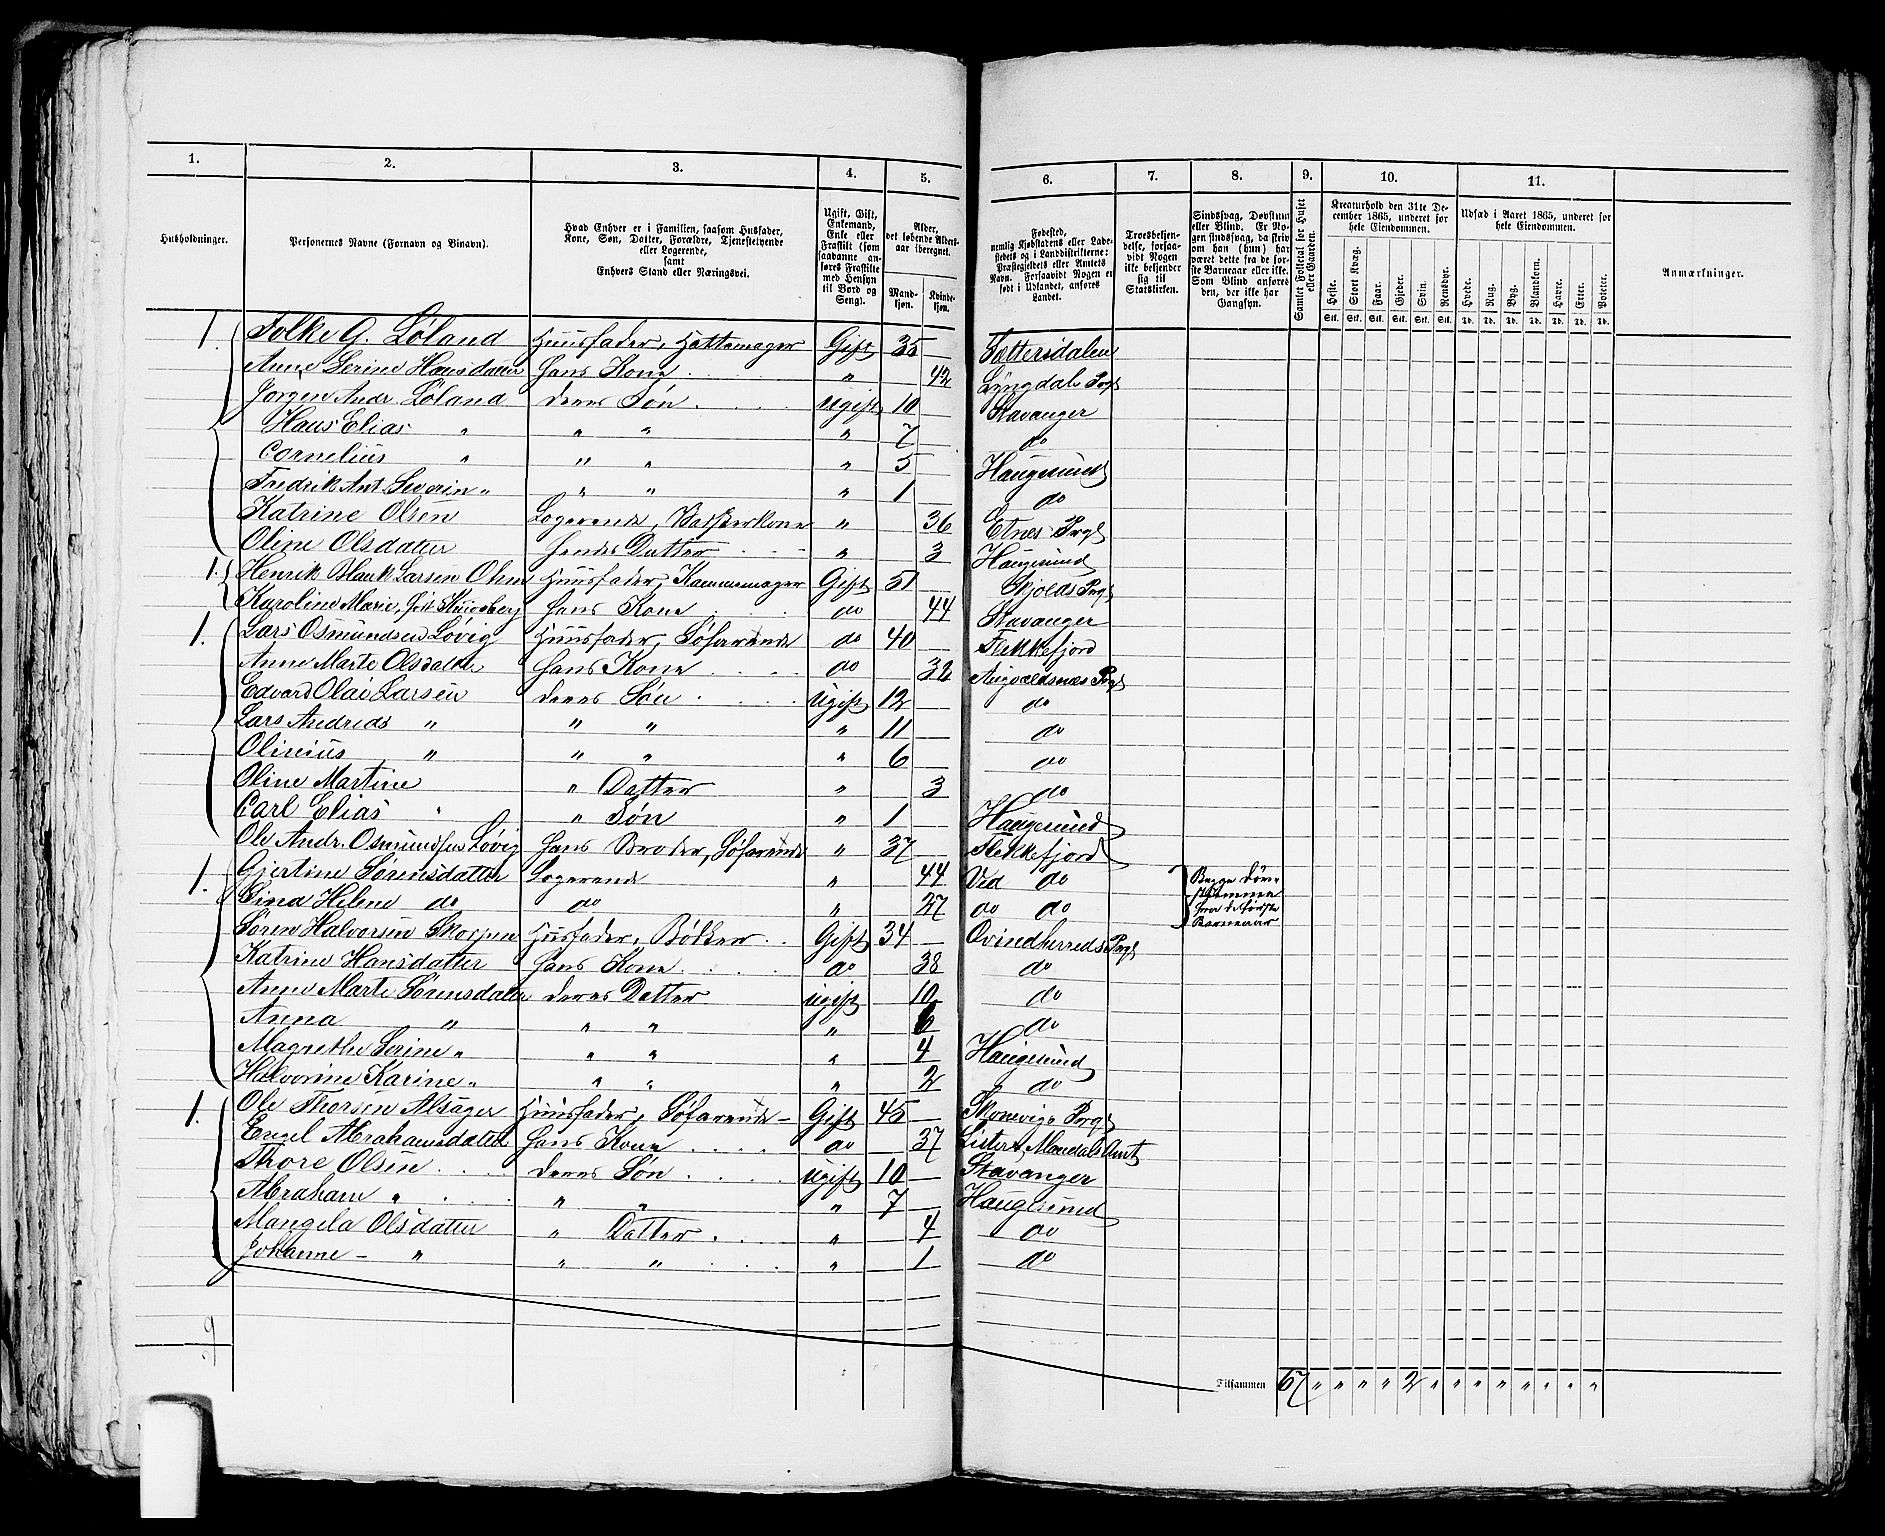 1. 2. 3. 4. 5. 6. 7. 8. 9. 10. 11.
Husholdninger.
Personernes Navne (Fornavn og Binavn).
Hvad Enhver er i Familien, saasom Husfader,
Kone, Søn, Datter, Forældre, Tjenestetyende
eller Logerende,
samt
Enhvers Stand eller Næringsvei.
Ugift, Gift,
Enkemand,
Enke eller
Fraskilt (som
saadanne an-
føres Fraskilte
med Hensyn
til Bord og
Seng).
Alder,
det løbende Alders-
aar iberegnet.
Mand-
kjøn.
Kvinde-
kjøn.
Fødested,
nemlig Kjøbstadens eller Lade-
stedets og i Landdistrikterne:
Præstegjeldets eller Amtets
Navn. Forsaavidt Nogen er
født i Udlandet, anføres
Landet.
Troesbekjen-
delse, forsaa-
vidt Nogen
ikke bekjender
sig til
Statskirken.
Sindssvag, Døvstum
eller Blind. Er No-
gen sindssvag, da skriv
om han (hun) har
været dette fra de før-
ste Barneaar eller ikke.
Som Blind anføres
den, der ikke har
Gangsyn.
Samlet Folketal for Huset
eller Gaarden.
Kreaturhold den 31te De-
cember 1865, underet for
hele Eiendommen.
Heste. Stort Kvæg. Faar. Gjeder. Svin. Rensdyr.
Stk. Stk. Stk. Stk. Stk. Stk.
Udsæd i Aaret 1865, underet for
hele Eiendommen.
Hvede. Rug. Byg. Blandkorn. Havre. Erter. Poteter.
Td. Td. Td. Td. Td. Td. Td.
Anmærkninger.
1. Folke G. Løland Huusfader, Hattemager Gift 35 Fættersdalen
Anne Serine Hansdatter Hans Kone " 42 Lyngdals Prgl
Jørgen Andr. Løland deres Søn Ugift 10 Stavanger
Hans Elias " " " " 7 do
Cornelius " " " " 5 Haugesund
Fredrik Ant. Severin " " " " 1 do
Katrine Olsen Logerende, Vadskerkone " 36 Etnes Prgl
Oline Olsdatter hendes Datter " 3 Haugesund
1. Henrik Blank Larsen Ohm Huusfader, Kammemager Gift 51 Skjolds Prgl
Karoline Marie, født Hans Kone do 44 Stavanger
1. Lars Osmundsen Løvig Huusfader, Søfarende do 40 Flekkefjord
Anne Marte Olsdatter Hans Kone do 32 Augvaldsnæs Prgl
Edvard Olai Larsen deres Søn Ugift 12 do
Lars Andreas " " " " 11 do
Olinius " " " " 6 do
Oline Martine " Datter " 3 do
Carl Elias " " Søn " 1 Haugesund
Ole Andr. Osmundsen Løvig Hans Broder, Søfarende " 37 Flekkefjord
1. Gjertine Sørensdatter Logerende " 44 Ved do Begge Døve
Sina Helene do do " 27 do do stumme
fra de første
Barneaar
Søren Halvorsen Skorpen Husfader, Bøkker Gift 34 Qvindherreds Prgl
Katrine Hansdatter Hans Kone do 38 do
Anne Marte Sørensdatter deres Datter ugift 10 do
Anna " " " " 6 do
Magrethe Serine " " " " 4 Haugesund
Halvorine Karine " " " " 2 do
1. Ole Thorsen Alsager Huusfader, Søfarende Gift 45 Skonevigs Prgl
Engel Abrahamsdatter Hans Kone do 37 Lister & Mandals Amt
Thore Olsen deres Søn Ugift 10 Stavanger
Abraham " " " " 7 Haugesund
Mangela Olsdatter " Datter " 4 do
Johanne " " " " 1 do
9
Tilsammen 67 " " " " 2 " " " " " " " "